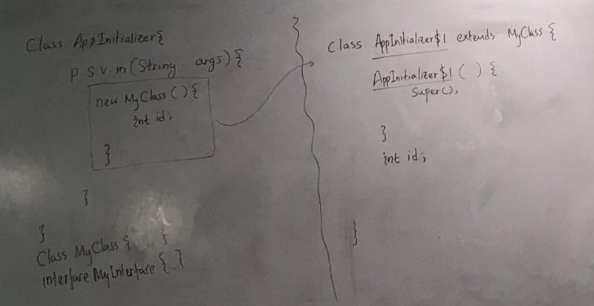 Class AppInitializer{
P S V m (String args) {
new MyClass () {
int id;
}
}
}
Class MyClass { }
interface MyInterface { }
}
Class AppInitializer$1 extends MyClass {
AppInitializer$1 ( ) {
Super();
}
int id;
}